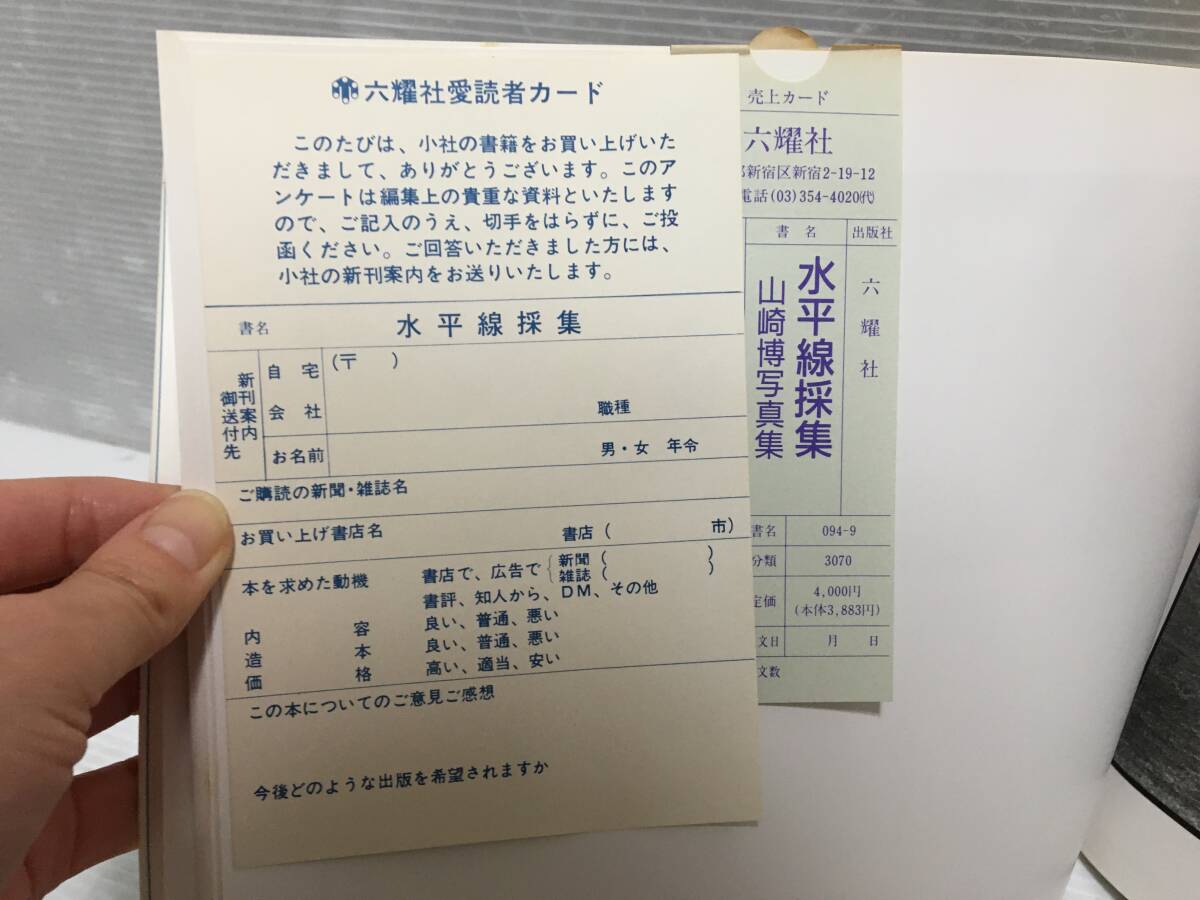 六耀社愛読者カード
このたびは、小社の書籍をお買い上げいた
だきまして、ありがとうございます。このア
ンケートは編集上の貴重な資料といたします
ので、ご記入のうえ、切手をはらずに、ご投
函ください。ご回答いただきました方には、
小社の新刊案内をお送りいたします。
書名 水平線採集
新刊案内
御送付先
自宅 (〒 )
会社 職種
お名前 男・女 年令
ご購読の新聞・雑誌名
お買い上げ書店名 書店( 市)
本を求めた動機 書店で、広告で{新聞( )
雑誌( )
書評、知人から、DM、その他
内容 良い、普通、悪い
造本 良い、普通、悪い
価格 高い、適当、安い
この本についてのご意見ご感想
今後どのような出版を希望されますか
売上カード
六耀社
新宿区新宿2-19-12
電話(03)354-4020(代)
書名 出版社
六耀社
水平線採集
山崎博写真集
書名 094-9
分類 3070
定価 4,000円
(本体3,883円)
文日 月 日
文数